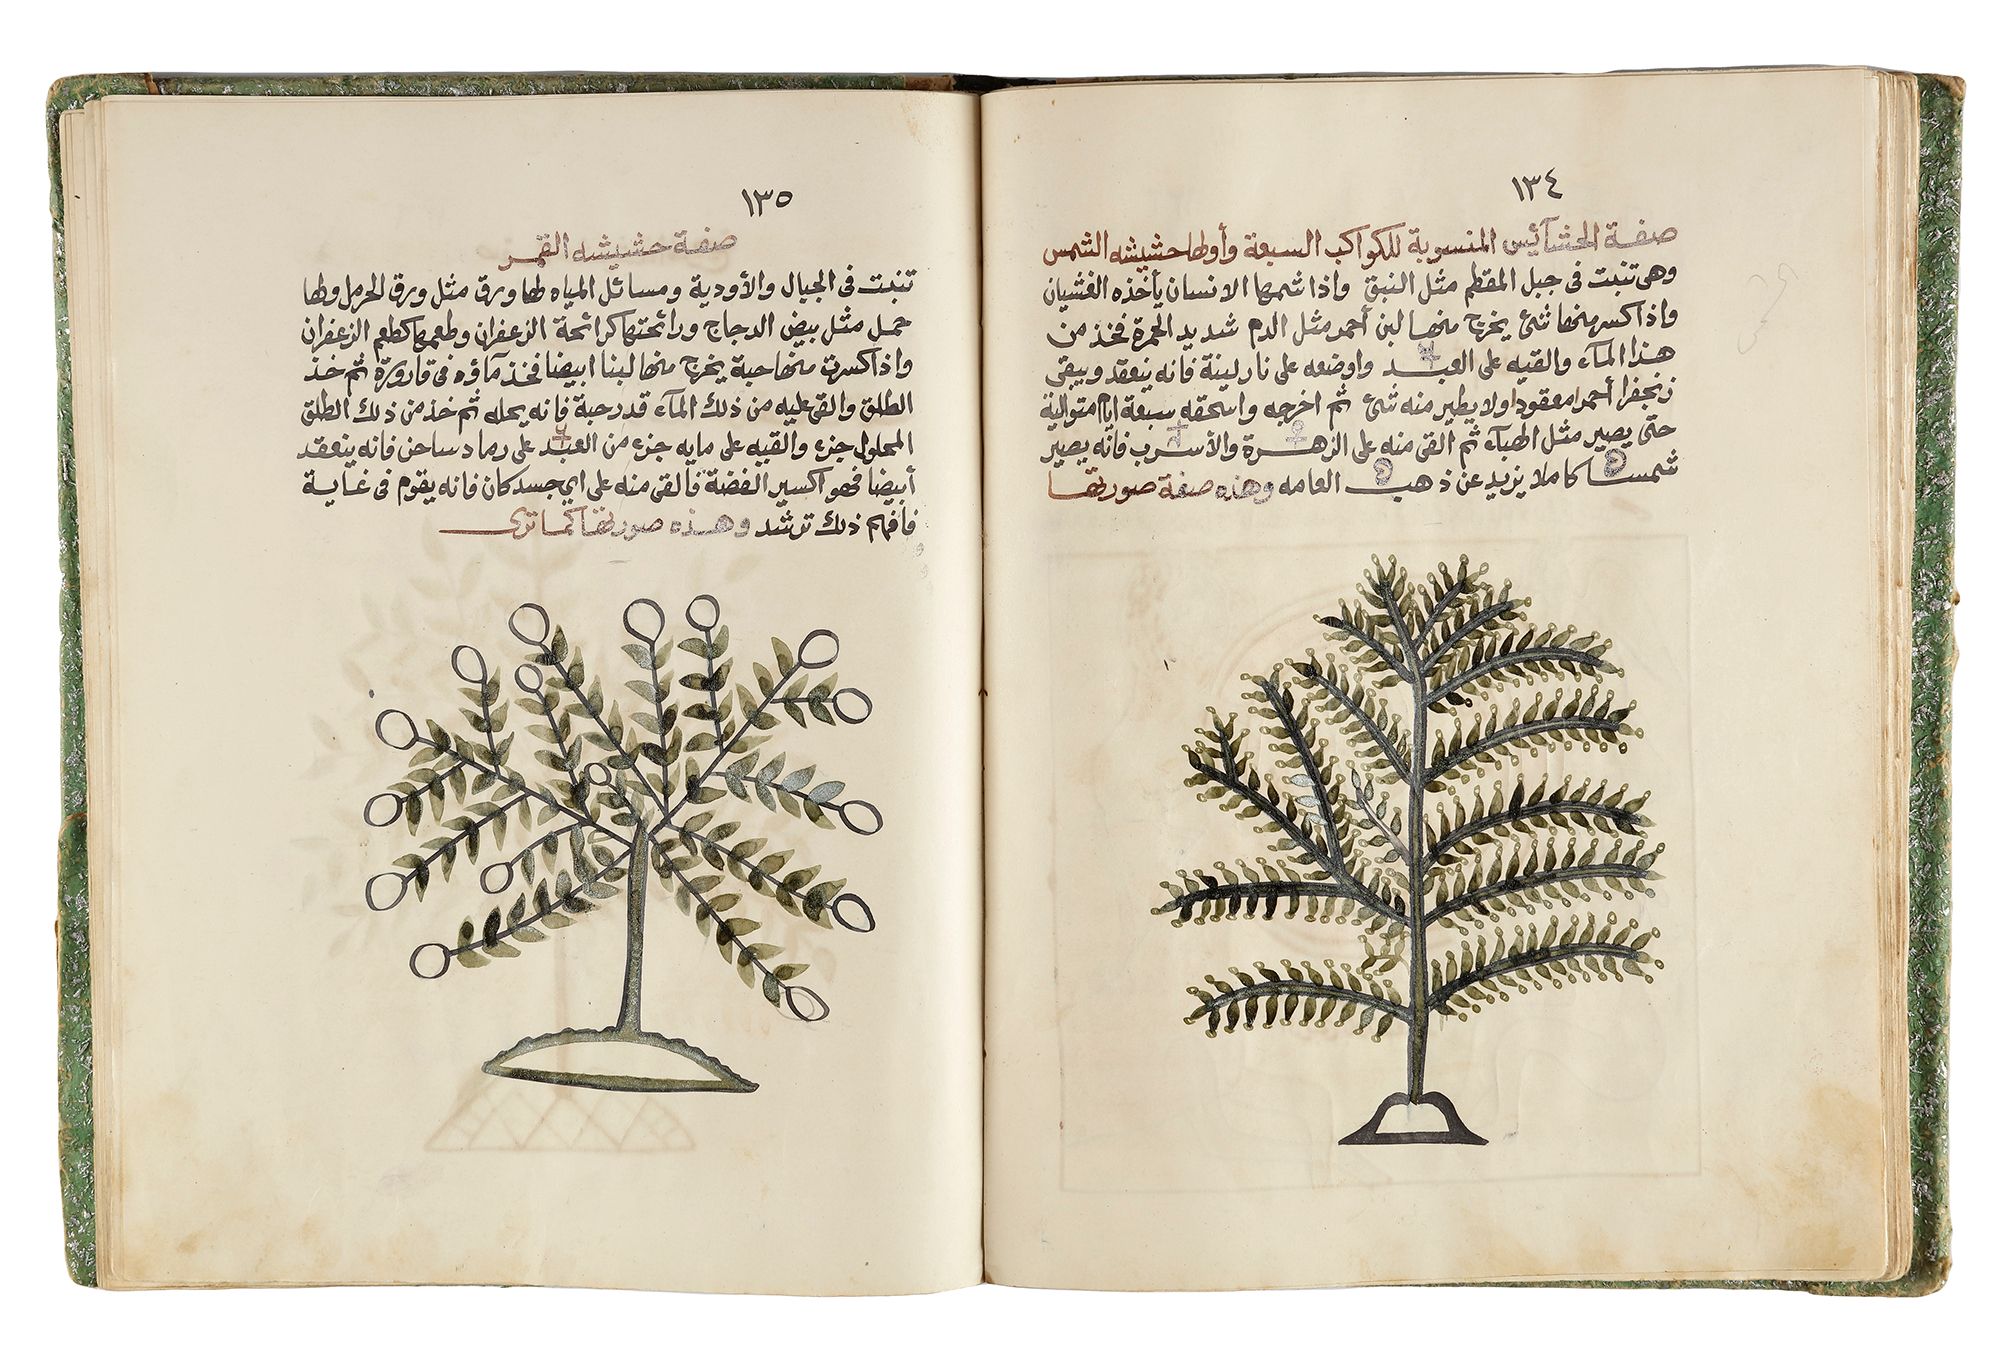 ١٣٤
صفة الحشآئس المنسوبة للكواكب السبعة وأولها حشيشه الشمس
وهى تنبت فى جبل المقطم مثل النبق واذا شمها الانسان يأخذه الغشيان
واذا كسر منها شئ يخرج منها لبن أحمر مثل الدم شديد الحمرة فخذ من
هذا المآء والقيه على العبد واوضعه على نار لينة فانه ينعقد ويبقى
زنجفرا أحمرا معقودا ولا يطير منه شئ ثم اخرجه واسحقه سبعة ايام متوالية
حتى يصير مثل الهبآء ثم القى منه على الزهرة والأسرب فانه يصير
شمسا كاملا يزيد عن ذهب العامه وهذه صفة صورتها
١٣٥
صفة حشيشه القمر
تنبت فى الجبال والأودية ومسائل المياه لها ورق مثل ورق الحرمل ولها
حمل مثل بيض الدجاج ورائحتها كرائحة الزعفران وطعمها كطعم الزعفران
واذا كسرت منها حبة يخرج منها لبنا ابيضا فخذ مآؤه فى قارورة ثم خذ
الطلق والقى عليه من ذلك المآء قدر حبة فانه يحله ثم خذ من ذلك الطلق
المحلول جزء والقيه على مايه جزء من العبد على رماد ساخن فانه ينعقد
أبيضا فهو اكسير الفضة فالقى منه على اى جسد كان فانه يقوم فى غاية
فافهم ذلك ترشد وهذه صورتها كما ترى